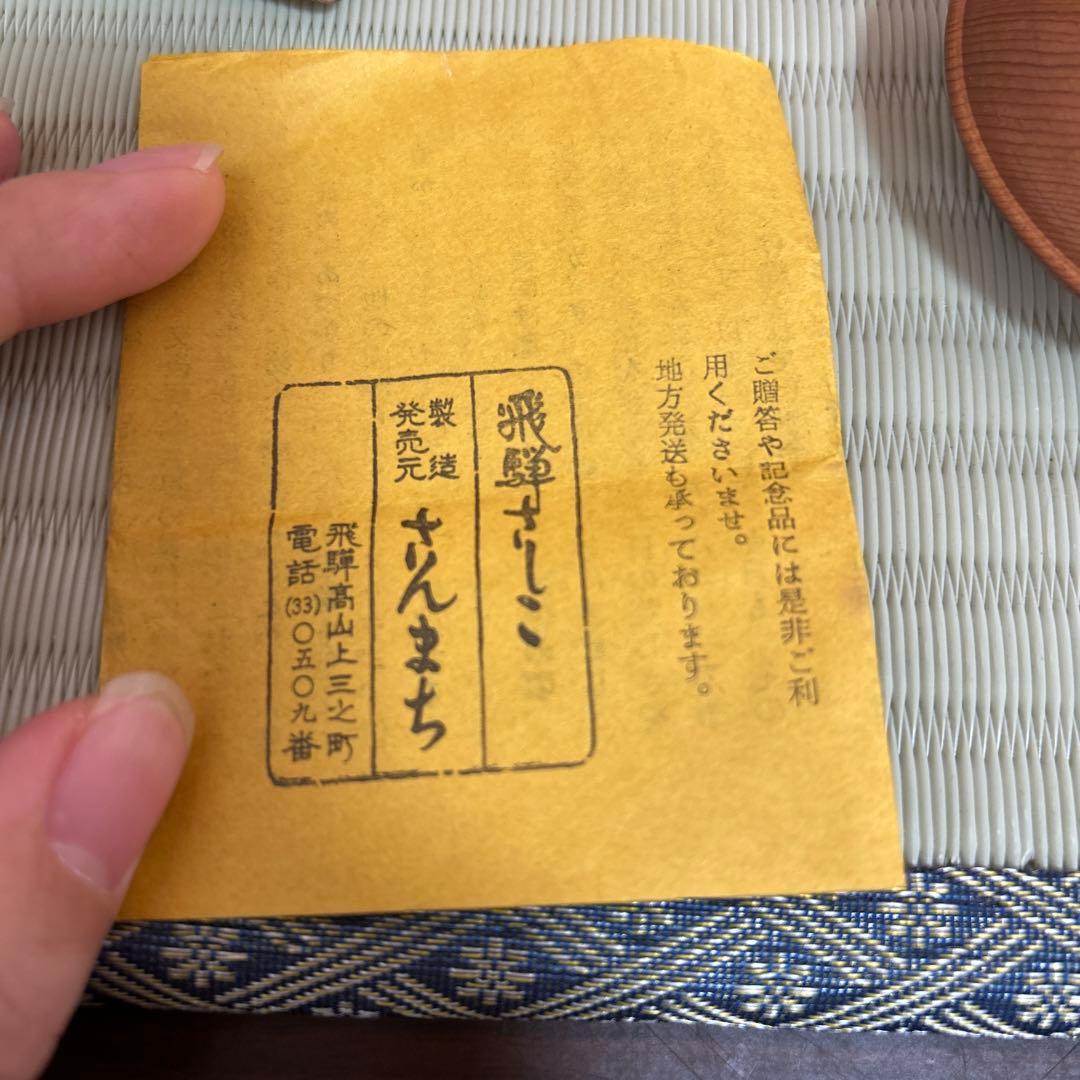 ご贈答や記念品には是非ご利
用くださいませ。
地方発送も承っております。
飛騨さしこ
製造
発売元
さんまち
飛騨高山上三之町
電話(33)〇五〇九番